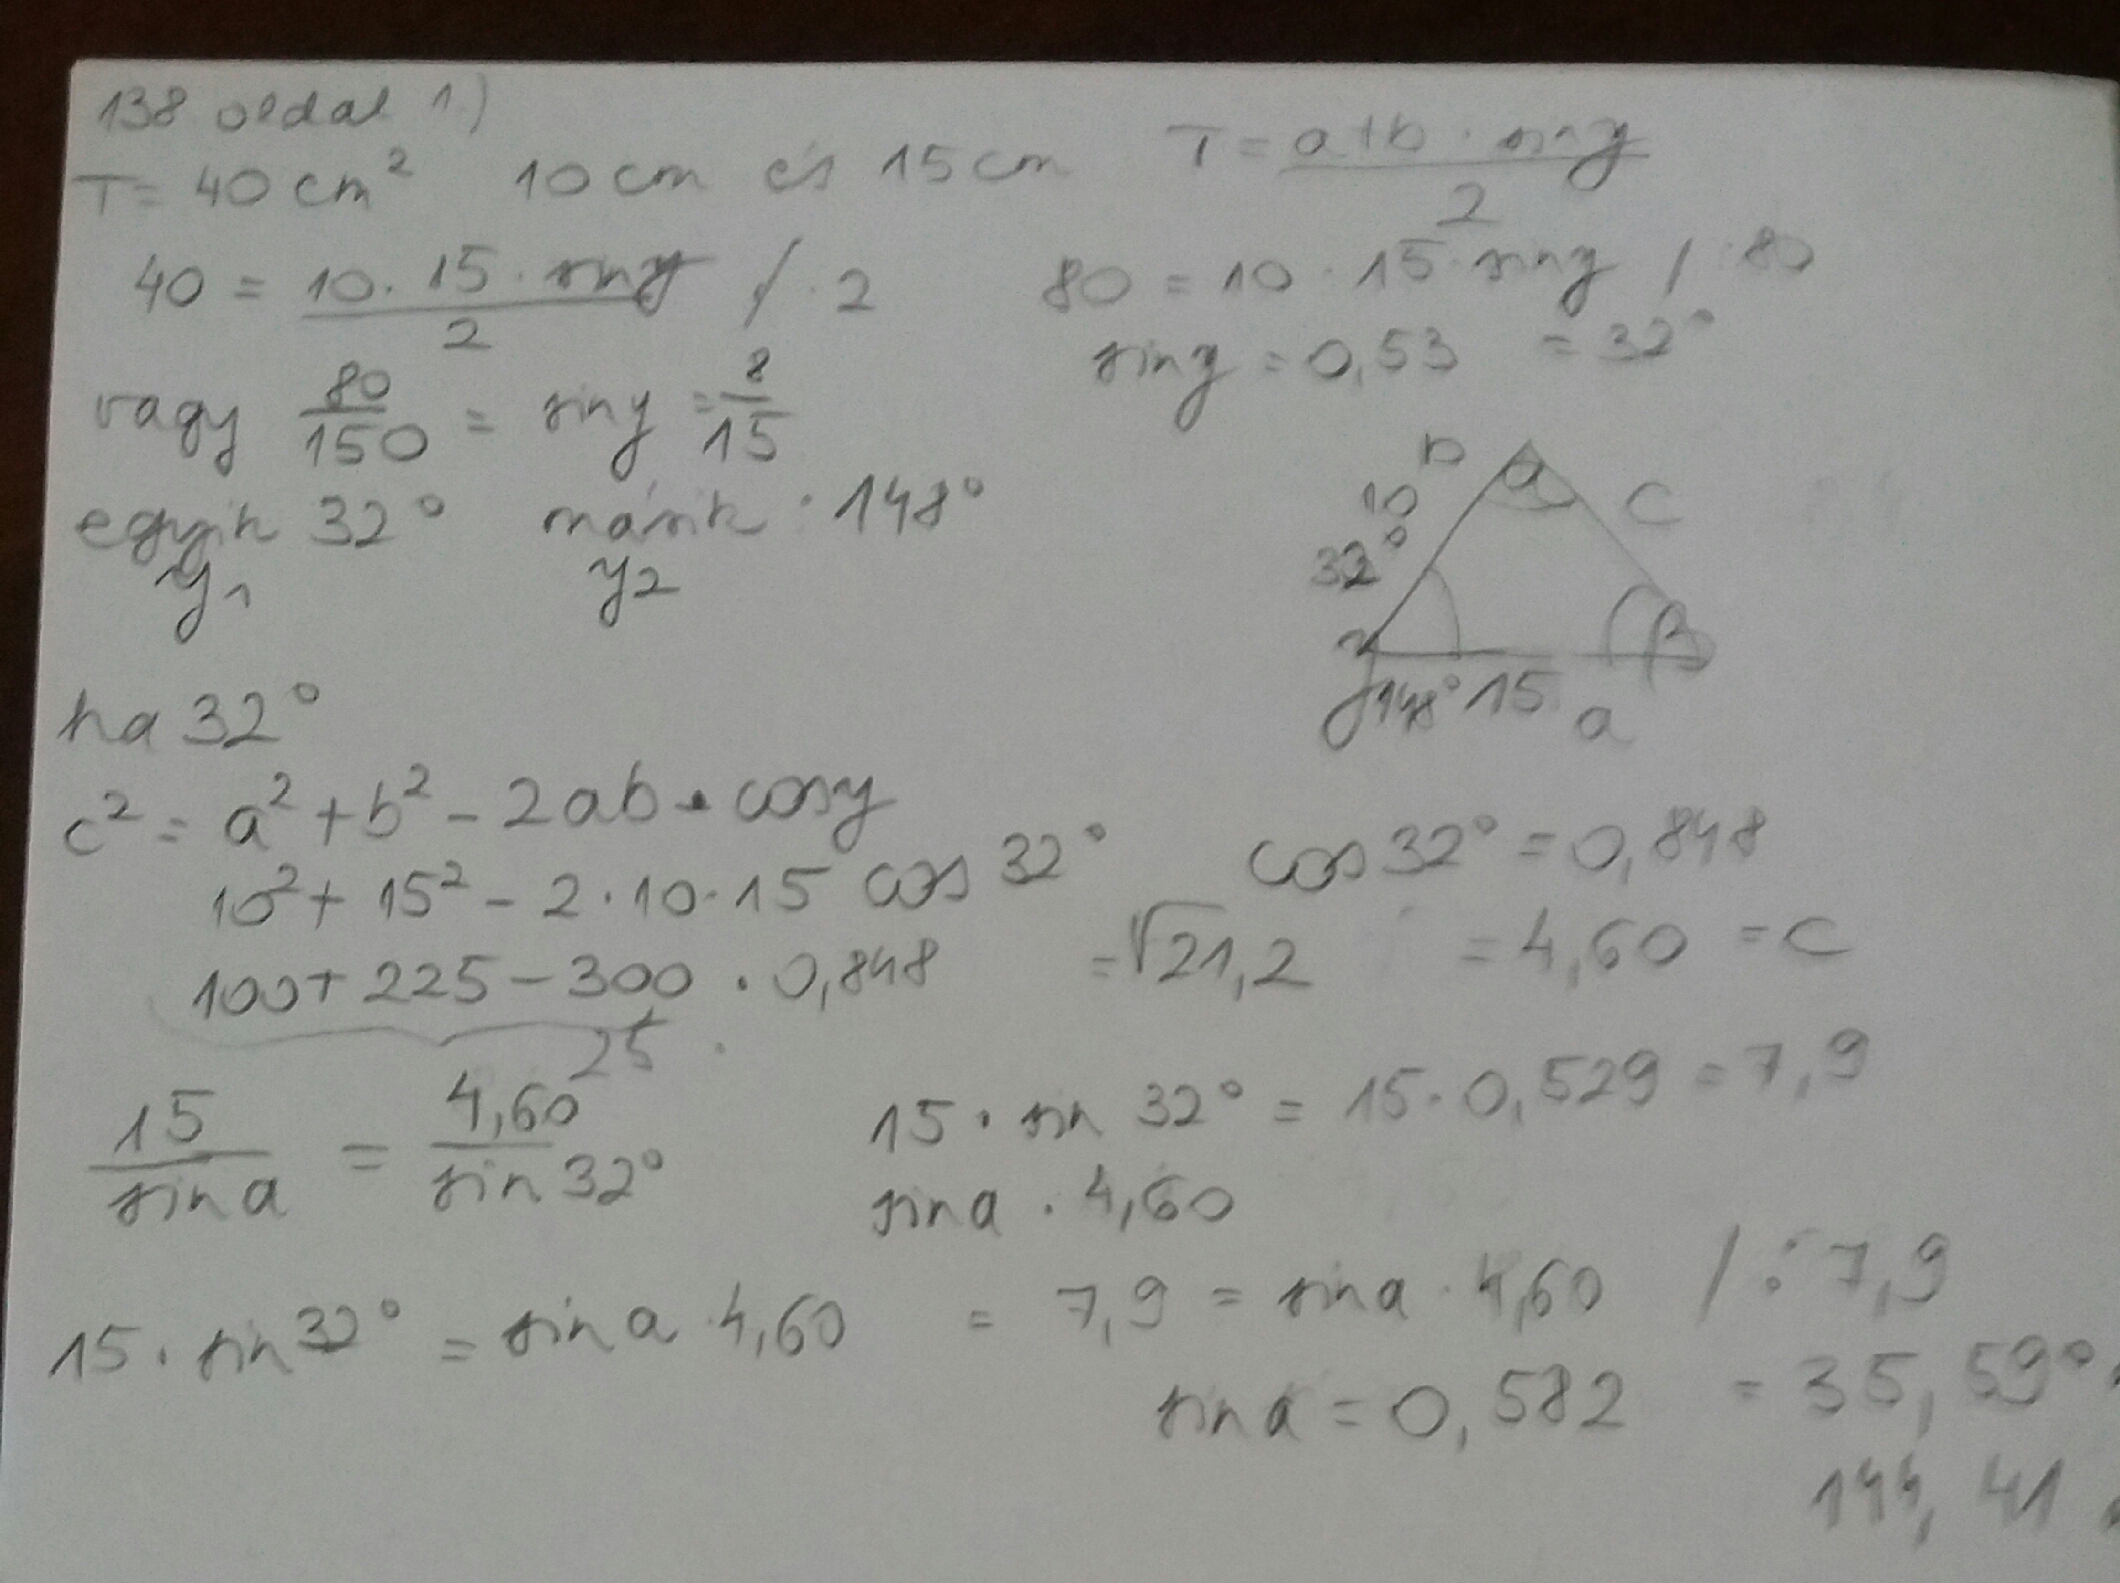 138 oldal 1.)
T = 40 cm² 10 cm és 15 cm T = a+b · sin γ / 2
40 = 10 · 15 · sin γ / 2 / · 2 80 = 10 · 15 · sin γ / : 80
sin γ = 0,53 = 32°
vagy 80/150 = sin γ = 8/15
egyik 32° másik : 148°
γ1 γ2
b α c
10
32°
β
γ 148° 15 a
ha 32°
c² = a² + b² - 2ab · cos γ
10² + 15² - 2 · 10 · 15 cos 32° cos 32° = 0,848
100 + 225 - 300 · 0,848 = √21,2 = 4,60 = c
25 ·
15 / sin α = 4,60 / sin 32° 15 · sin 32° = 15 · 0,529 = 7,9
sin α · 4,60
15 · sin 32° = sin α · 4,60 = 7,9 = sin α · 4,60 / : 7,9
sin α = 0,582 = 35,59°
144,41